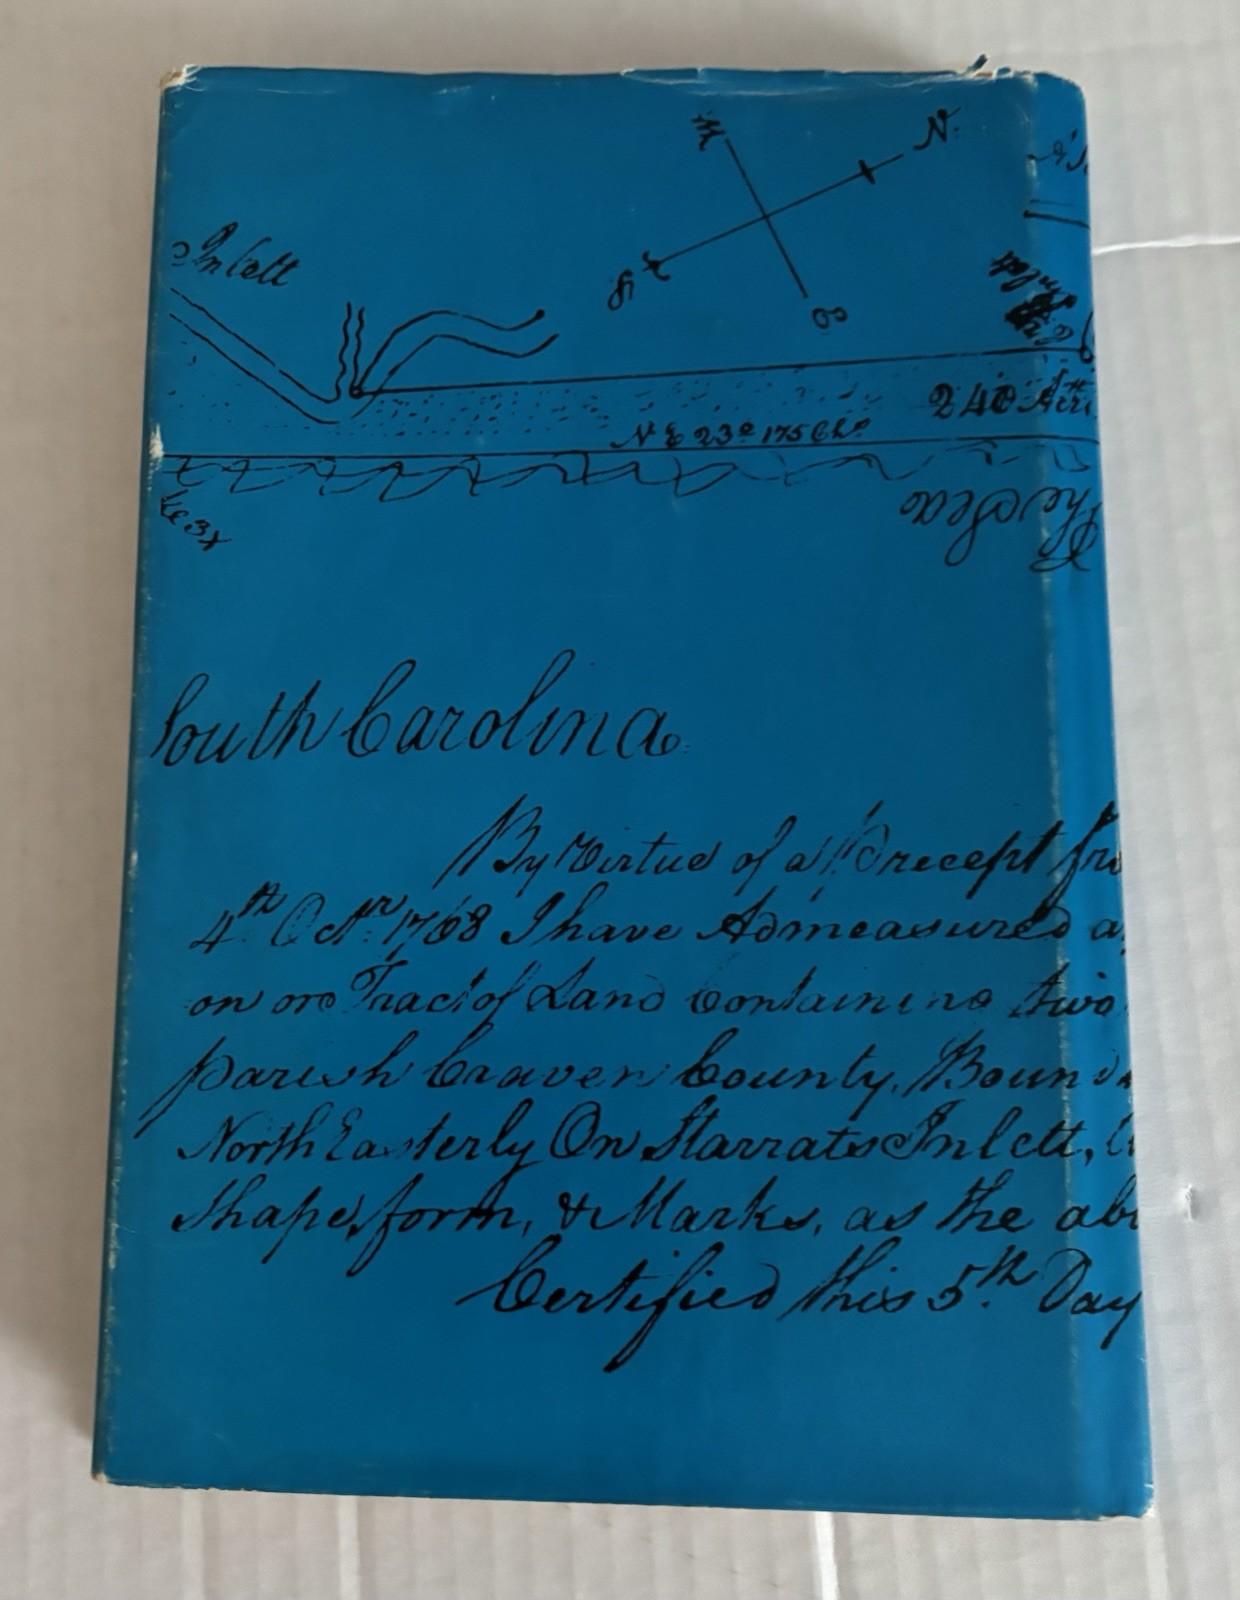 N.
W
Inlett
S
E
240 Acre
N E 23° 175 Chs
The Sea
South Carolina
By Virtue of a Precept fro
4th Octr. 1768 I have Admeasured a
on or Tract of Land Containing two
parish Craven County, Bound
North Easterly On Starrats Inlett,
Shape, form, & Marks, as the abo
Certified this 5th Day